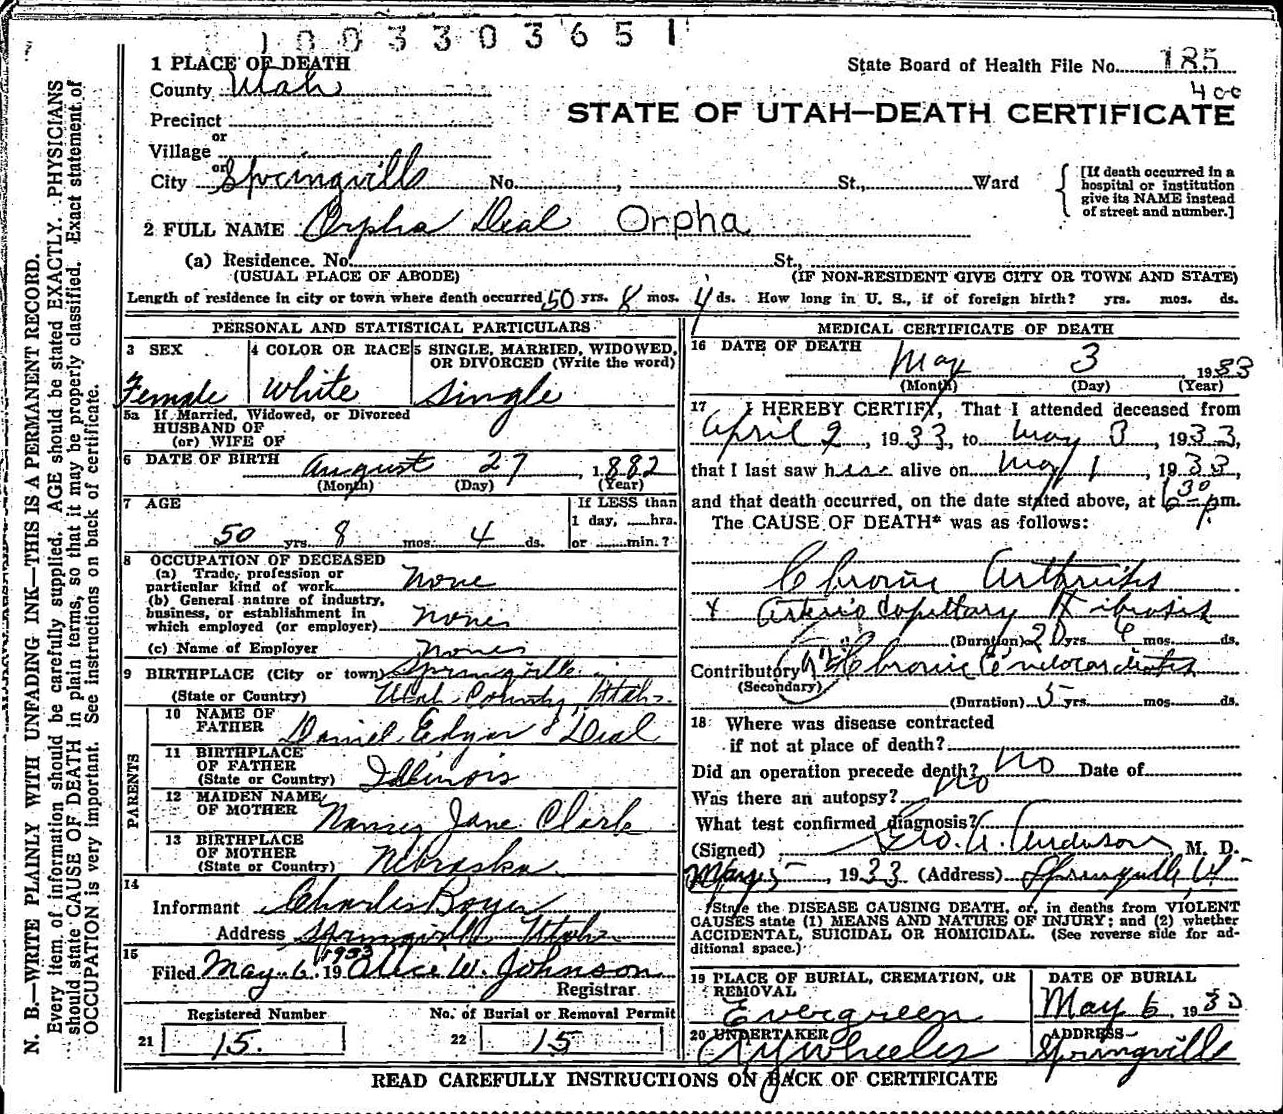 1003303651
1 PLACE OF DEATH
State Board of Health File No. 185
400
County Utah
STATE OF UTAH—DEATH CERTIFICATE
Precinct
or
Village
or
City Springville No. , St., Ward
[If death occurred in a
hospital or institution
give its NAME instead
of street and number.]
2 FULL NAME Orpha Deal Orpha
(a) Residence. No. St.,
(USUAL PLACE OF ABODE) (IF NON-RESIDENT GIVE CITY OR TOWN AND STATE)
Length of residence in city or town where death occurred 50 yrs. 8 mos. 4 ds. How long in U. S., if of foreign birth? yrs. mos. ds.
PERSONAL AND STATISTICAL PARTICULARS
3 SEX 4 COLOR OR RACE 5 SINGLE, MARRIED, WIDOWED,
OR DIVORCED (Write the word)
Female White Single
5a If Married, Widowed, or Divorced
HUSBAND OF
(or) WIFE OF
6 DATE OF BIRTH August 27, 1882
(Month) (Day) (Year)
7 AGE If LESS than
1 day, hrs.
50 yrs. 8 mos. 4 ds. or min.?
8 OCCUPATION OF DECEASED
(a) Trade, profession or
particular kind of work None
(b) General nature of industry,
business, or establishment in
which employed (or employer) None
(c) Name of Employer None
9 BIRTHPLACE (City or town) Springville
(State or Country) Utah County, Utah
PARENTS
10 NAME OF
FATHER Daniel Edgar Deal
11 BIRTHPLACE
OF FATHER
(State or Country) Illinois
12 MAIDEN NAME
OF MOTHER Nancy Jane Clark
13 BIRTHPLACE
OF MOTHER
(State or Country) Nebraska
14
Informant Charles Boyer
Address Springville Utah
15 1933
Filed May 6, 19 Alice W. Johnson
Registrar
Registered Number No. of Burial or Removal Permit
21 15. 22 15
MEDICAL CERTIFICATE OF DEATH
16 DATE OF DEATH
May 3 1933
(Month) (Day) (Year)
17 I HEREBY CERTIFY, That I attended deceased from
April 2, 1933, to May 3, 1933,
that I last saw her alive on May 1, 1933,
and that death occurred, on the date stated above, at 6 30 pm.
The CAUSE OF DEATH* was as follows:
Chronic Arthritis
& Arterio Capillary Fibrosis
(Duration) 20 yrs. mos. ds.
Contributory Chronic Endocarditis
(Secondary)
(Duration) 5 yrs. mos. ds.
18 Where was disease contracted
if not at place of death?
Did an operation precede death? No Date of
Was there an autopsy? No
What test confirmed diagnosis?
(Signed) Geo. A. Anderson M. D.
May 5, 1933 (Address) Springville Ut
*State the DISEASE CAUSING DEATH, or, in deaths from VIOLENT
CAUSES state (1) MEANS AND NATURE OF INJURY; and (2) whether
ACCIDENTAL, SUICIDAL OR HOMICIDAL. (See reverse side for ad-
ditional space.)
19 PLACE OF BURIAL, CREMATION, OR
REMOVAL
Evergreen
DATE OF BURIAL
May 6 1933
20 UNDERTAKER
A Y Wheeler
ADDRESS
Springville
READ CAREFULLY INSTRUCTIONS ON BACK OF CERTIFICATE
N. B.—WRITE PLAINLY WITH UNFADING INK—THIS IS A PERMANENT RECORD.
Every item of information should be carefully supplied. AGE should be stated EXACTLY. PHYSICIANS
should state CAUSE OF DEATH in plain terms, so that it may be properly classified. Exact statement of
OCCUPATION is very important. See instructions on back of certificate.